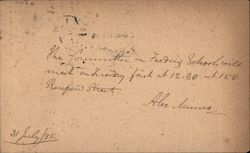 The Committee on Feeding Schools will
meet on Friday first at 12.30 at 158
Renfield Street
Alex Munro
31 July/85.